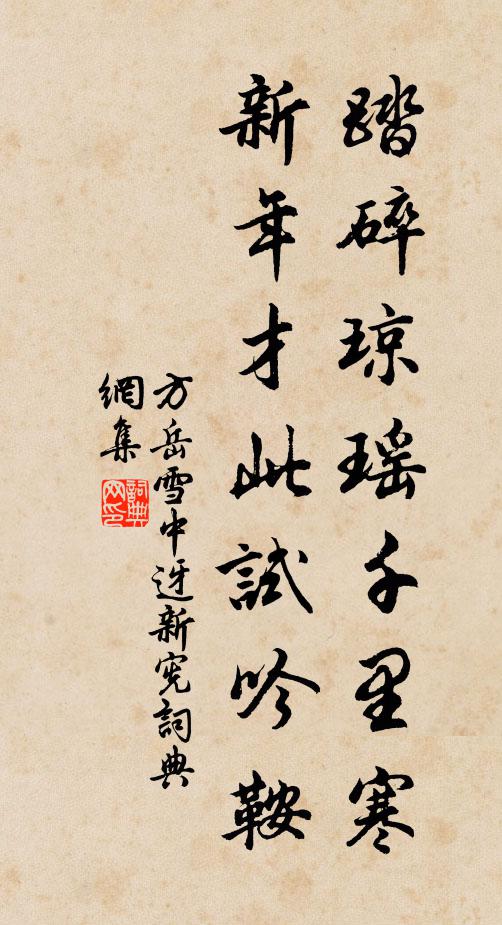 踏碎琼瑶千里寒
新年才此試吟鞍
方岳雪中迓新宪詞典
網集
詞典
网印